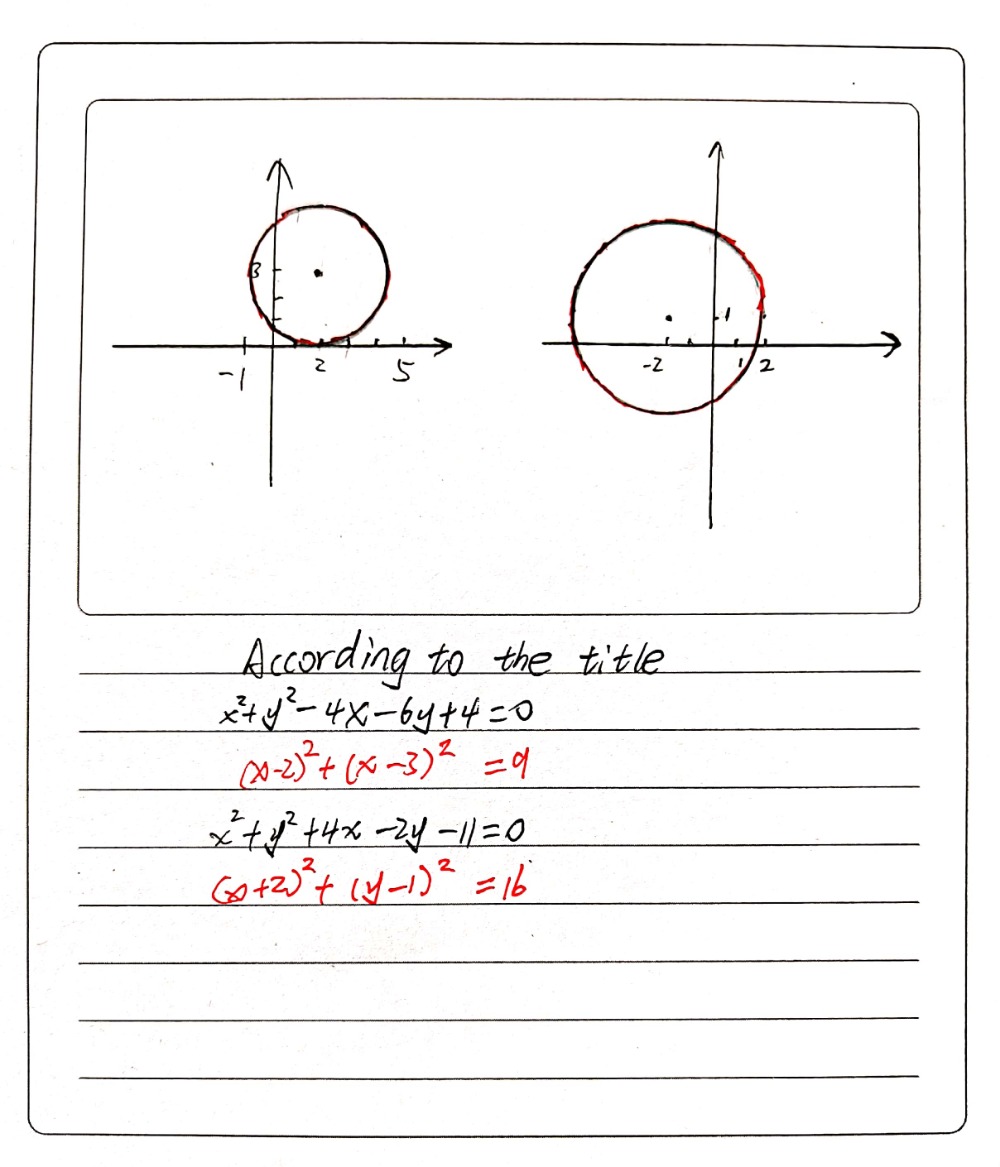 3
-1 2 5
1
-2 1 2
According to the title
x²+y²-4x-6y+4=0
(x-2)²+(x-3)²=9
x²+y²+4x-2y-11=0
(x+2)²+(y-1)²=16